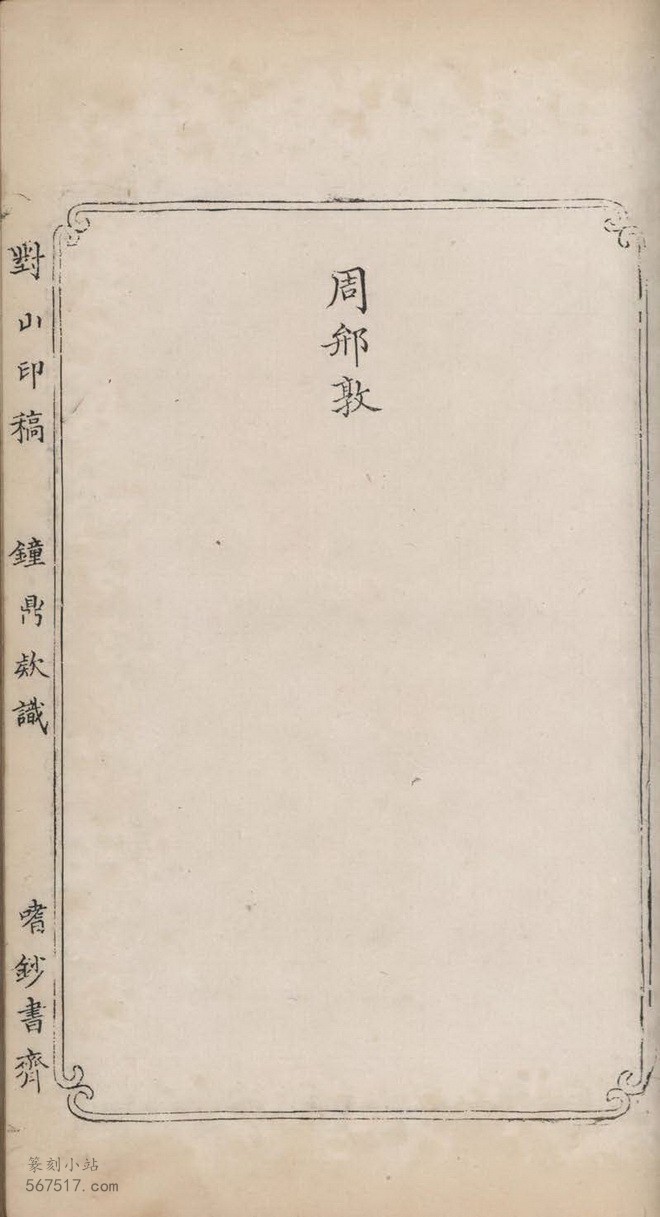 周䢵敦
對山印稿 鐘鼎欵識 嗜鈔書齊
篆刻小站
567517.com